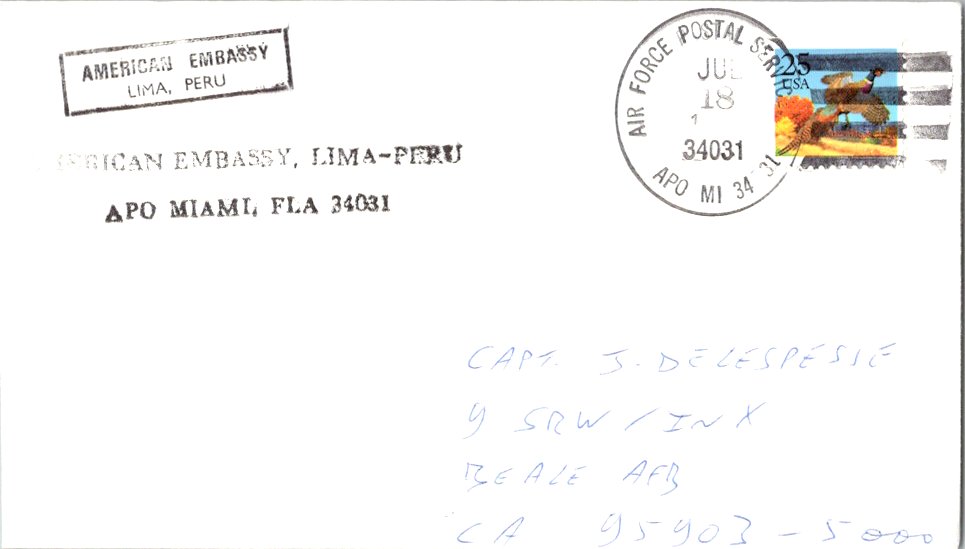 AMERICAN EMBASSY
LIMA, PERU
AMERICAN EMBASSY, LIMA-PERU
APO MIAMI, FLA 34031
AIR FORCE POSTAL SERVICE
JUL
18
1
34031
APO MI 34 31
25
USA
CAPT. J. DELESPESSE
9 SRW / INX
BEALE AFB
CA 95903-5000